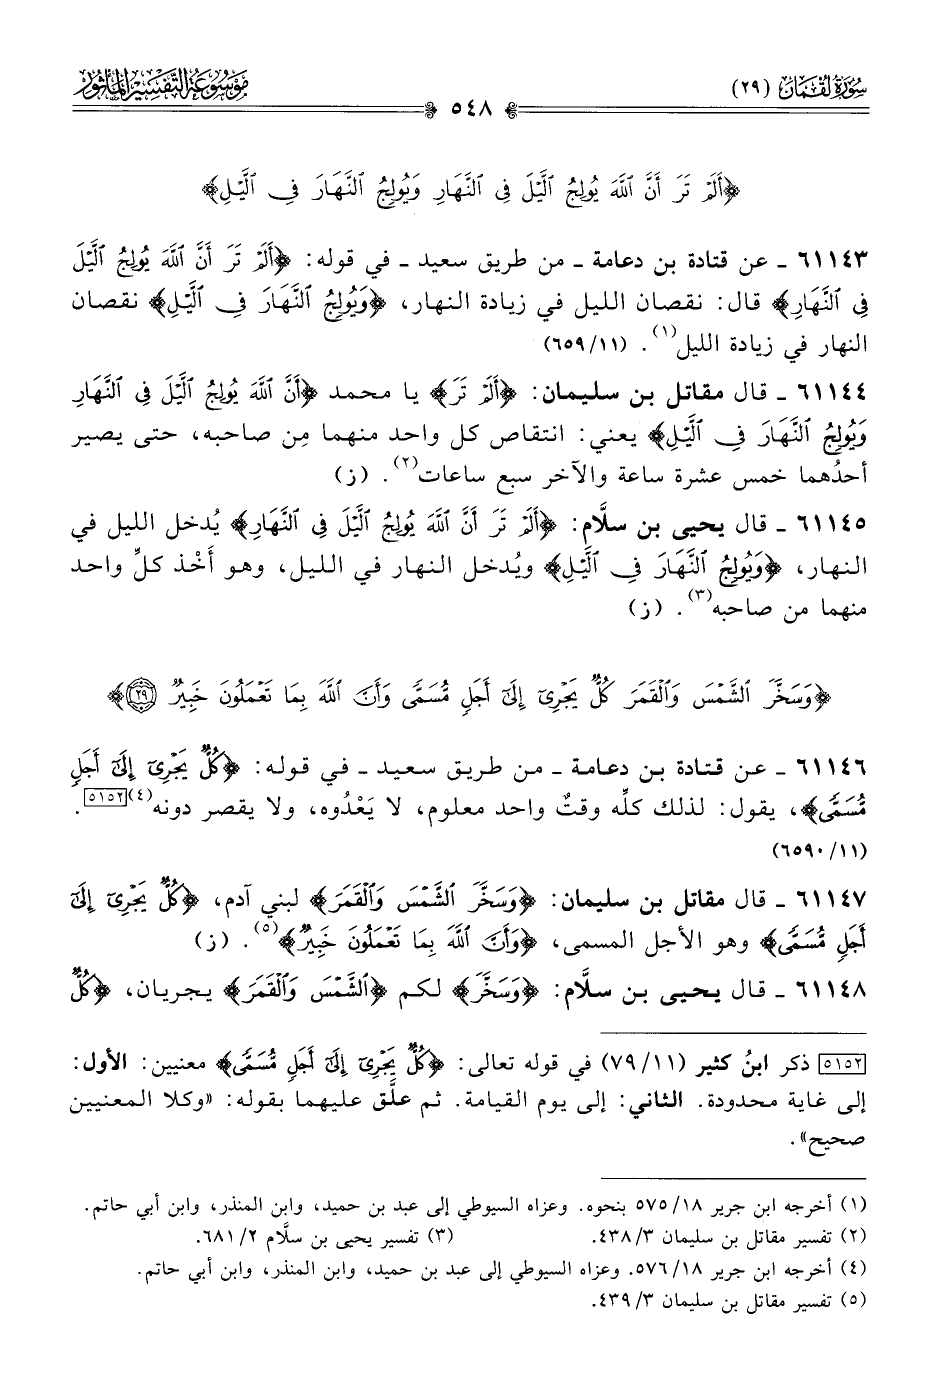 سُورَةُ لُقْمَانَ (٢٩)
٥٤٨
مَوْسُوعَةُ التَّفْسِيرِ المَأْثُور
﴿أَلَمْ تَرَ أَنَّ ٱللَّهَ يُولِجُ ٱلَّيْلَ فِى ٱلنَّهَارِ وَيُولِجُ ٱلنَّهَارَ فِى ٱلَّيْلِ﴾
٦١١٤٣ ـ عن قتادة بن دعامة ـ من طريق سعيد ـ في قوله: ﴿أَلَمْ تَرَ أَنَّ ٱللَّهَ يُولِجُ ٱلَّيْلَ
فِى ٱلنَّهَارِ﴾ قال: نقصان الليل في زيادة النهار، ﴿وَيُولِجُ ٱلنَّهَارَ فِى ٱلَّيْلِ﴾ نقصان
النهار في زيادة الليل(١). (١١/٦٥٩)
٦١١٤٤ ـ قال مقاتل بن سليمان: ﴿أَلَمْ تَرَ﴾ يا محمد ﴿أَنَّ ٱللَّهَ يُولِجُ ٱلَّيْلَ فِى ٱلنَّهَارِ
وَيُولِجُ ٱلنَّهَارَ فِى ٱلَّيْلِ﴾ يعني: انتقاص كل واحد منهما مِن صاحبه، حتى يصير
أحدُهما خمس عشرة ساعة والآخر سبع ساعات(٢). (ز)
٦١١٤٥ ـ قال يحيى بن سلَّام: ﴿أَلَمْ تَرَ أَنَّ ٱللَّهَ يُولِجُ ٱلَّيْلَ فِى ٱلنَّهَارِ﴾ يُدخل الليل في
النهار، ﴿وَيُولِجُ ٱلنَّهَارَ فِى ٱلَّيْلِ﴾ ويُدخل النهار في الليل، وهو أَخْذ كلِّ واحد
منهما من صاحبه(٣). (ز)
﴿وَسَخَّرَ ٱلشَّمْسَ وَٱلْقَمَرَ كُلٌّ يَجْرِىٓ إِلَىٰٓ أَجَلٍ مُّسَمًّى وَأَنَّ ٱللَّهَ بِمَا تَعْمَلُونَ خَبِيرٌ ٢٩﴾
٦١١٤٦ ـ عن قتادة بن دعامة ـ من طريق سعيد ـ في قوله: ﴿كُلٌّ يَجْرِىٓ إِلَىٰٓ أَجَلٍ
مُّسَمًّى﴾، يقول: لذلك كلِّه وقتٌ واحد معلوم، لا يَعْدُوه، ولا يقصر دونه(٤)[٥١٥٢].
(١١/ ٦٥٩٠)
٦١١٤٧ ـ قال مقاتل بن سليمان: ﴿وَسَخَّرَ ٱلشَّمْسَ وَٱلْقَمَرَ﴾ لبني آدم، ﴿كُلٌّ يَجْرِىٓ إِلَىٰٓ
أَجَلٍ مُّسَمًّى﴾ وهو الأجل المسمى، ﴿وَأَنَّ ٱللَّهَ بِمَا تَعْمَلُونَ خَبِيرٌ﴾(٥). (ز)
٦١١٤٨ ـ قال يحيى بن سلَّام: ﴿وَسَخَّرَ﴾ لكم ﴿ٱلشَّمْسَ وَٱلْقَمَرَ﴾ يجريان، ﴿كُلٌّ
[٥١٥٢] ذكر ابنُ كثير (١١/ ٧٩) في قوله تعالى: ﴿كُلٌّ يَجْرِىٓ إِلَىٰٓ أَجَلٍ مُّسَمًّى﴾ معنيين: الأول:
إلى غاية محدودة. الثاني: إلى يوم القيامة. ثم علَّق عليهما بقوله: «وكلا المعنيين
صحيح».
(١) أخرجه ابن جرير ١٨/ ٥٧٥ بنحوه. وعزاه السيوطي إلى عبد بن حميد، وابن المنذر، وابن أبي حاتم.
(٢) تفسير مقاتل بن سليمان ٣/ ٤٣٨. (٣) تفسير يحيى بن سلَّام ٢/ ٦٨١.
(٤) أخرجه ابن جرير ١٨/ ٥٧٦. وعزاه السيوطي إلى عبد بن حميد، وابن المنذر، وابن أبي حاتم.
(٥) تفسير مقاتل بن سليمان ٣/ ٤٣٩.